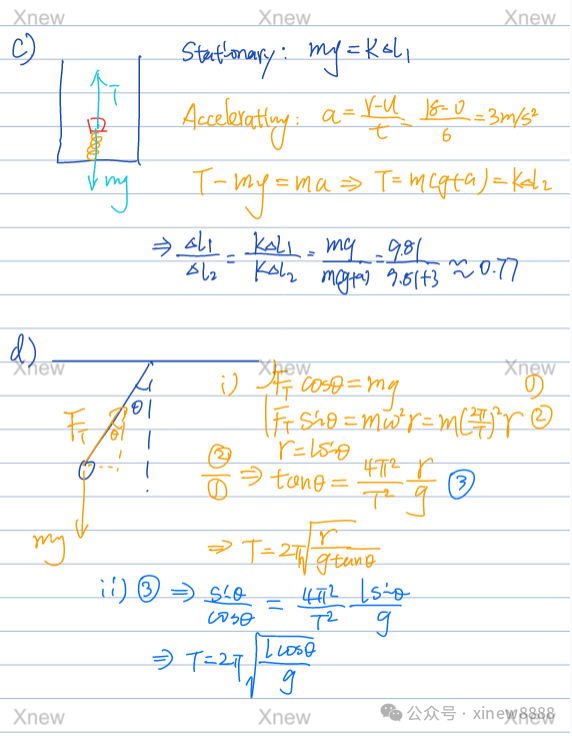 Xnew Xnew Xnew
c)
T
mg
Stationary: mg = KΔL₁
Accelerating: a = (v-u)/t = (18-0)/6 = 3m/s²
T - mg = ma ⇒ T = m(g+a) = KΔL₂
⇒ ΔL₁/ΔL₂ = KΔL₁/KΔL₂ = mg/m(g+a) = 9.81/9.81+3 ≈ 0.77
d)
Xnew Xnew Xnew
F_T
θ
θ
mg
i) F_T cosθ = mg ①
F_T sinθ = mω²r = m(2π/T)²r ②
r = lsinθ
②/① ⇒ tanθ = 4π²/T² r/g ③
⇒ T = 2π√(r/gtanθ)
ii) ③ ⇒ sinθ/cosθ = 4π²/T² lsinθ/g
⇒ T = 2π√(lcosθ/g)
Xnew Xnew 公众号 · xinew8888